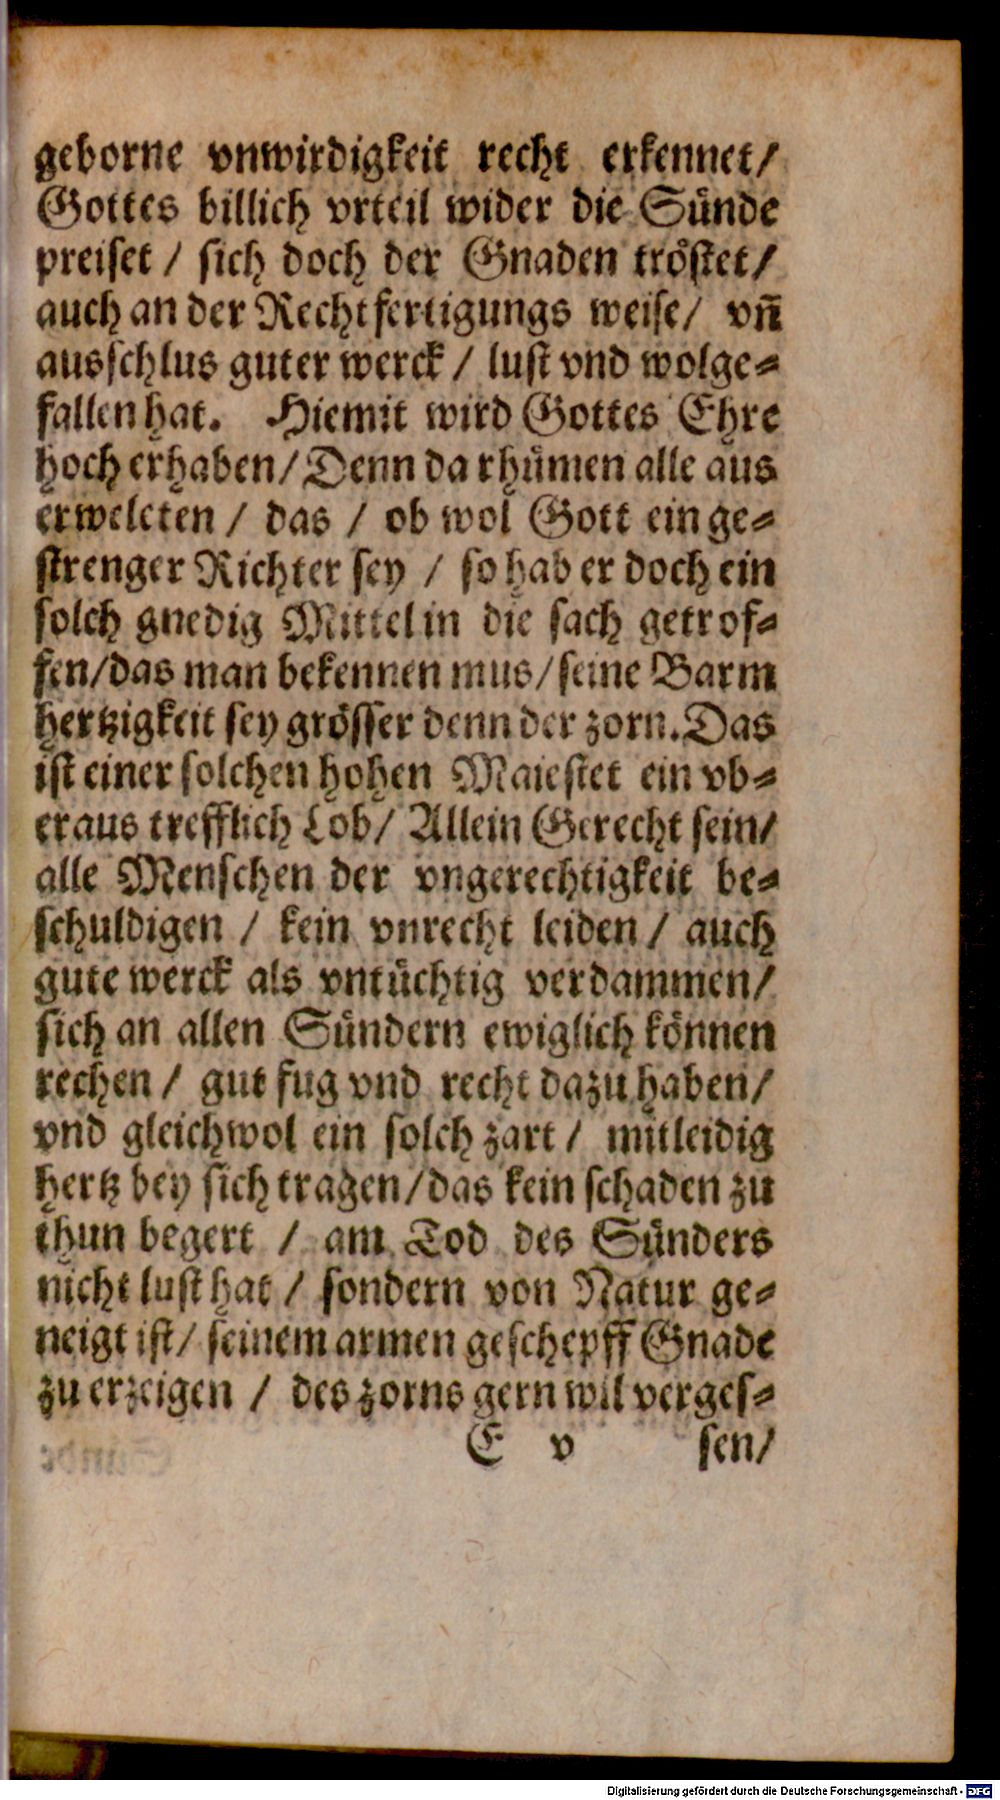 geborne vnwirdigkeit recht erkennet/
Gottes billich vrteil wider die Sünde
preiset / sich doch der Gnaden tröstet/
auch an der Rechtfertigungs weise/ vñ
ausschlus guter werck / lust vnd wolge=
fallen hat. Hiemit wird Gottes Ehre
hoch erhaben/Denn da rhümen alle aus
erweleten / das / ob wol Gott ein ge=
strenger Richter sey / so hab er doch ein
solch gnedig Mittel in die sach getrof=
fen/das man bekennen mus/seine Barm
hertzigkeit sey grösser denn der zorn.Das
ist einer solchen hohen Maiestet ein vb=
eraus trefflich Lob/ Allein Gerecht sein/
alle Menschen der vngerechtigkeit be=
schuldigen / kein vnrecht leiden / auch
gute werck als vntüchtig verdammen/
sich an allen Sündern ewiglich können
rechen / gut fug vnd recht dazu haben/
vnd gleichwol ein solch zart / mitleidig
hertz bey sich tragen/das kein schaden zu
thun begert / am Tod des Sünders
nicht lust hat / sondern von Natur ge=
neigt ist/ seinem armen geschepff Gnade
zu erzeigen / des zorns gern wil verges=
E v sen/
Digitalisierung gefördert durch die Deutsche Forschungsgemeinschaft - DFG